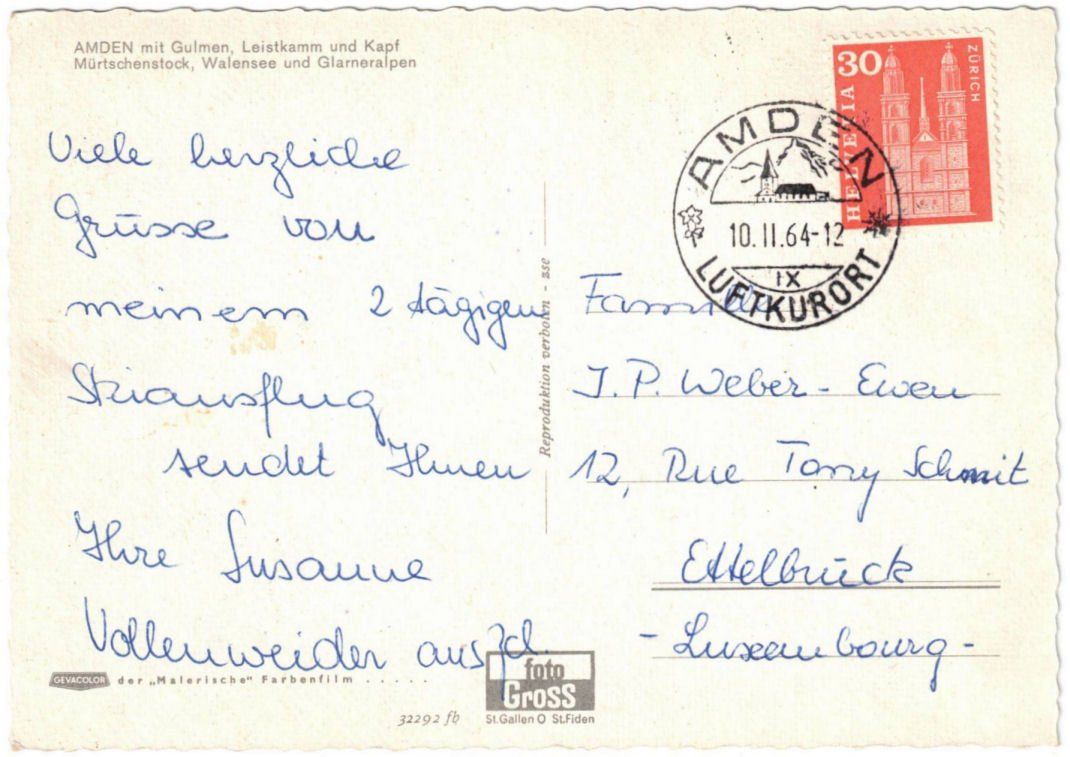 AMDEN mit Gulmen, Leistkamm und Kapf
Mürtschenstock, Walensee und Glarneralpen
Viele herzliche
Grüsse von
meinem 2 tägigen
Skiausflug
sendet Ihnen
Ihre Susanne
Vollenweider aus Zch.
GEVACOLOR der „Malerische" Farbenfilm . . . . .
32292 fb
foto
Gross
St.Gallen O St.Fiden
Reproduktion verboten - zse
30
HELVETIA
ZÜRICH
AMDEN
10.II.64-12
IX
LUFTKURORT
Familie
J. P. Weber - Ewen
12, Rue Tony Schmit
Ettelbrück
- Luxembourg -